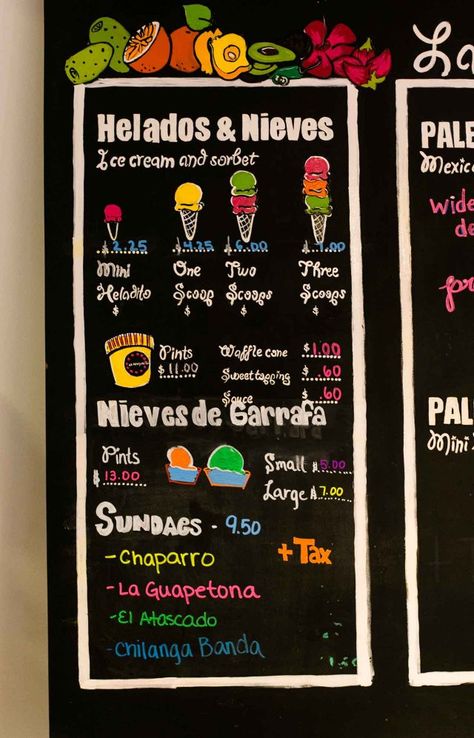 Helados & Nieves
Ice cream and sorbet
$2.25 $4.25 $6.00 $7.00
Mini One Two Three
Heladito Scoop Scoops Scoops
$ $ $ $
Pints
$11.00
Waffle cone $1.00
Sweet topping $ .60
Sauce $ .60
Nieves de Garrafa
Pints
$13.00
Small $5.00
Large $7.00
SUNDAES - 9.50
+ Tax
- Chaparro
- La Guapetona
- El Atascado
- Chilanga Banda
La
PALE
Mexic
Wide
de
PAL
Mini